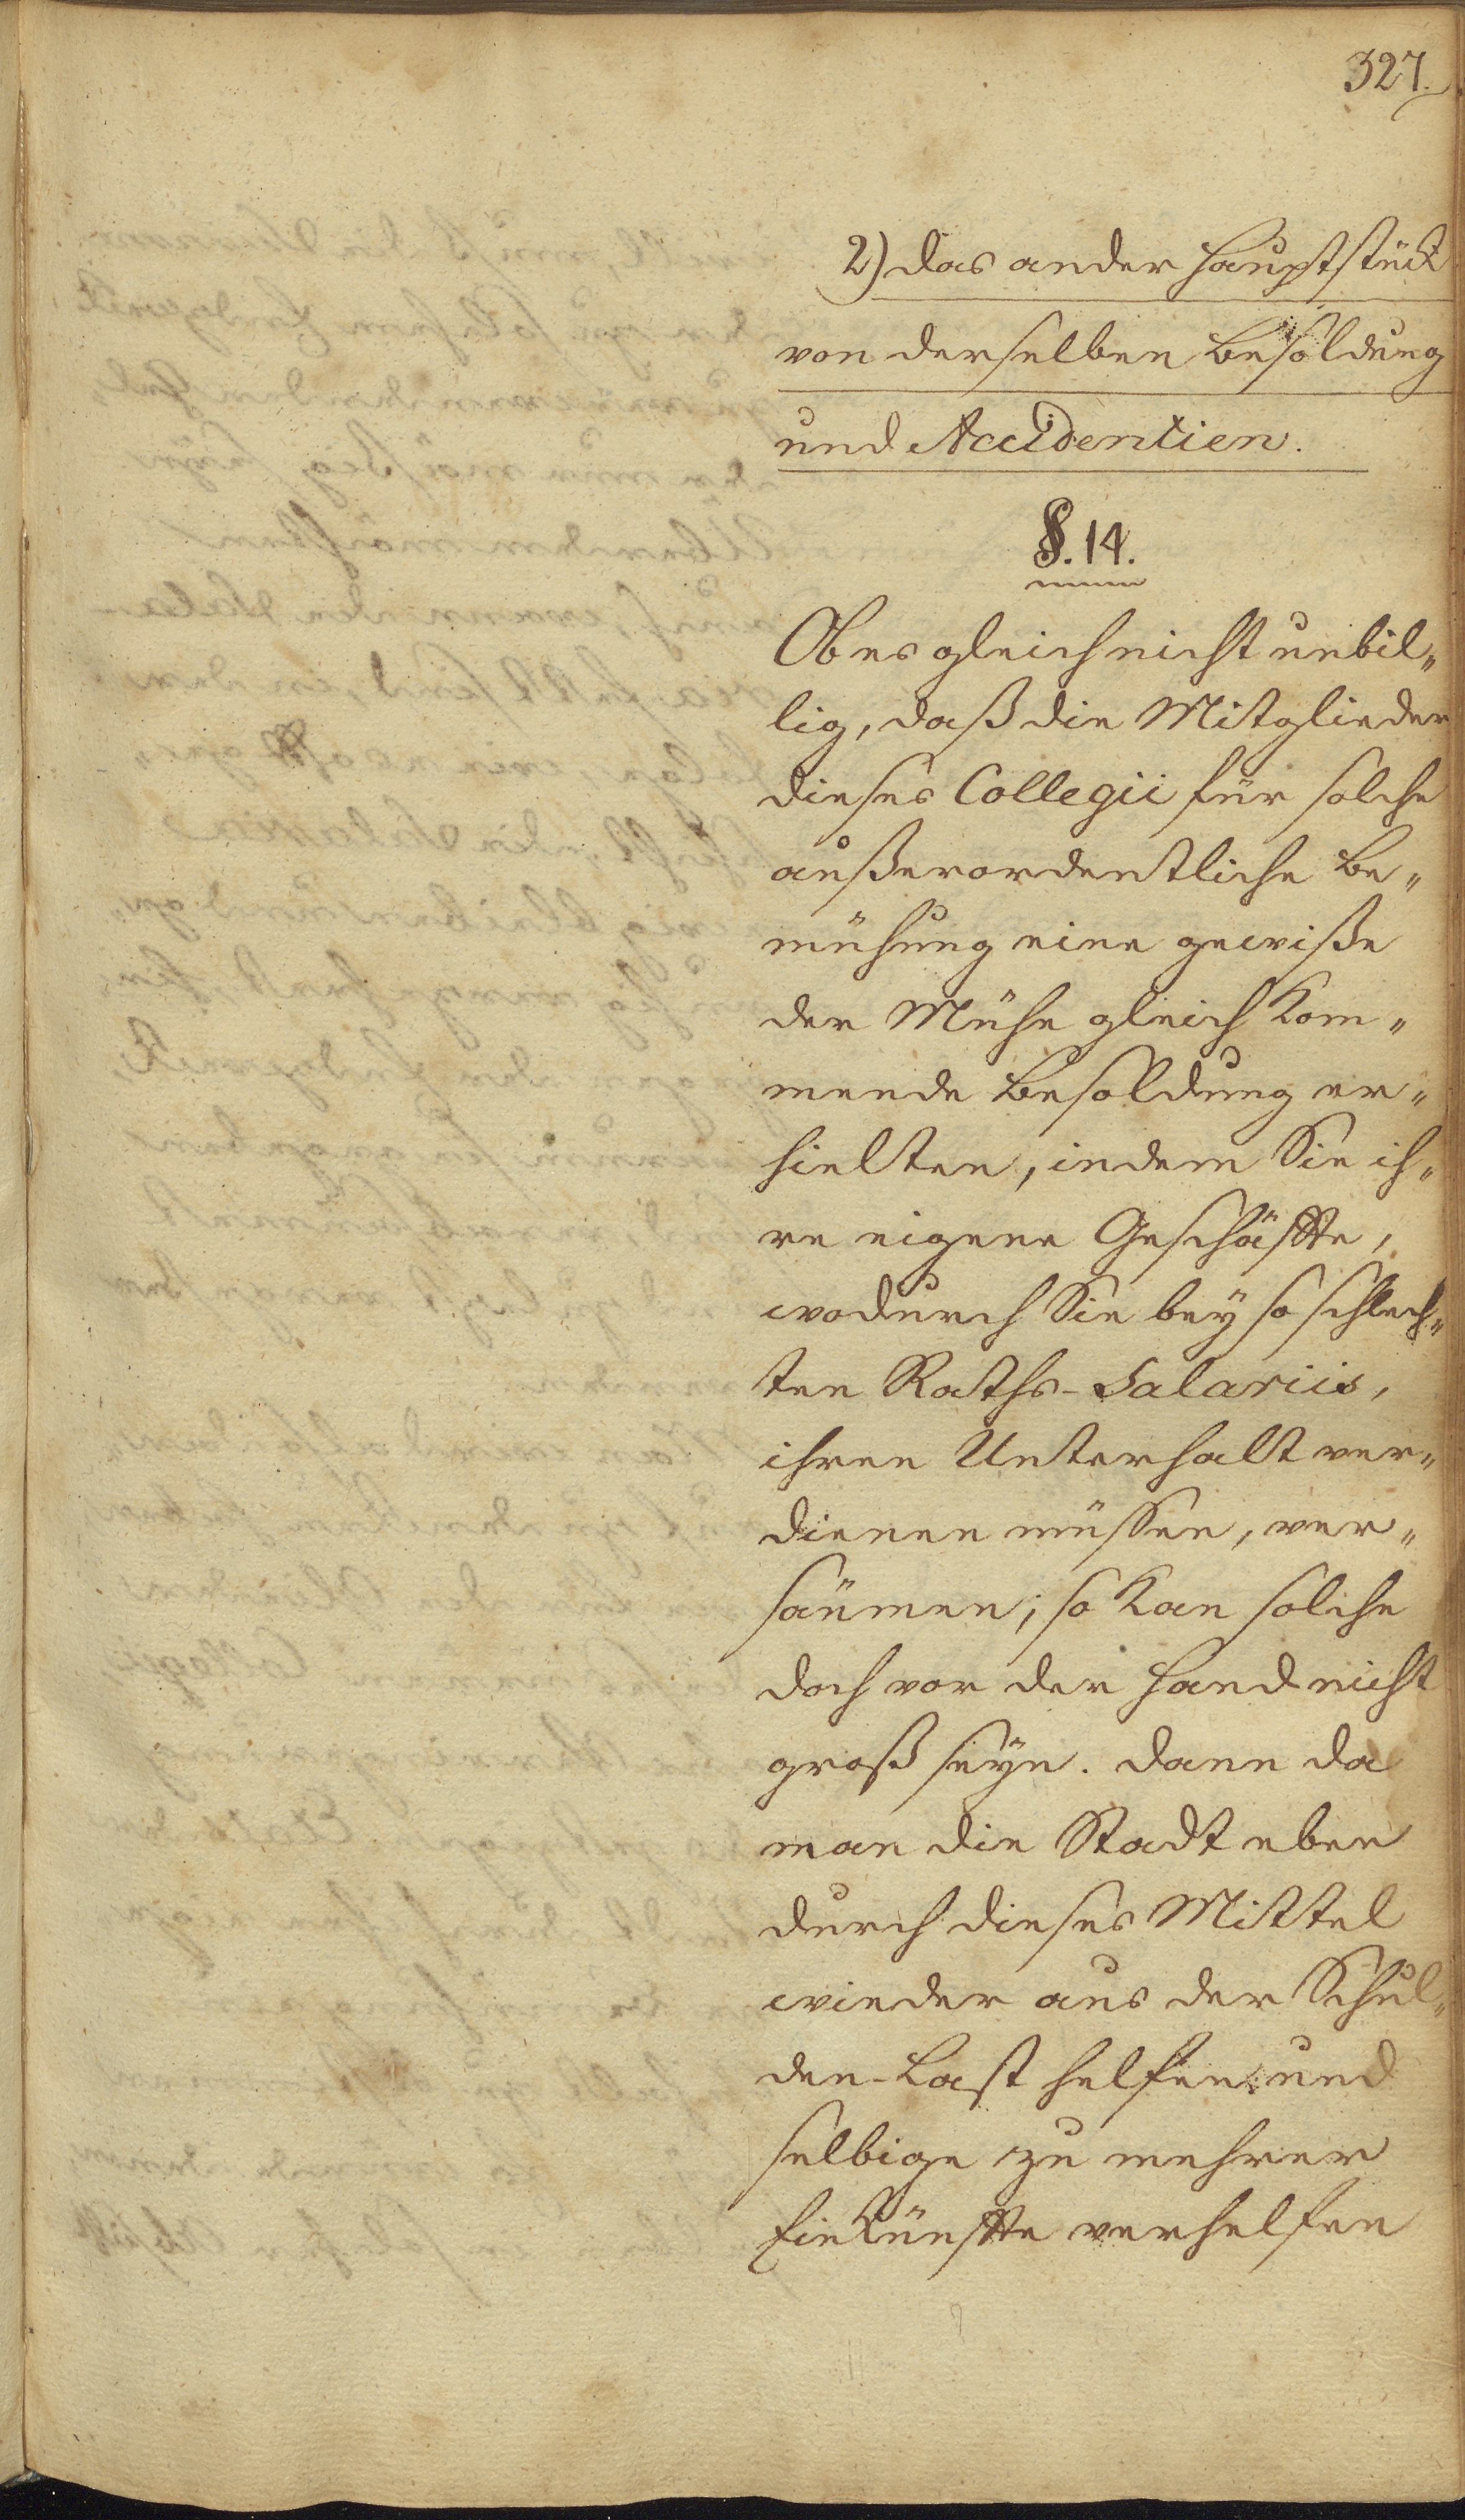 327.
2) das ander Hauptstück
von derselben Besoldung
und Accidentien.
§. 14.
Ob es gleich nicht unbil„
lig, daß die Mitglieder
dieses Collegii für solche
außerordentliche Be„
mühung eine gewiße
der Mühe gleich kom„
mende Besoldung er„
hielten, indem Sie ih„
re eigene Geschäffte,
wodurch Sie bey so schlech„
ten Raths-Salariis,
ihren Unterhalt ver„
dienen müssen, ver„
säumen; so kan solche
doch vor der Hand nicht
groß seyn. dann da
man die Stadt eben
durch dieses Mittel
wieder aus der Schul„
den-Last helfen und
selbige zu mehrer
Einkünffte verhelfen